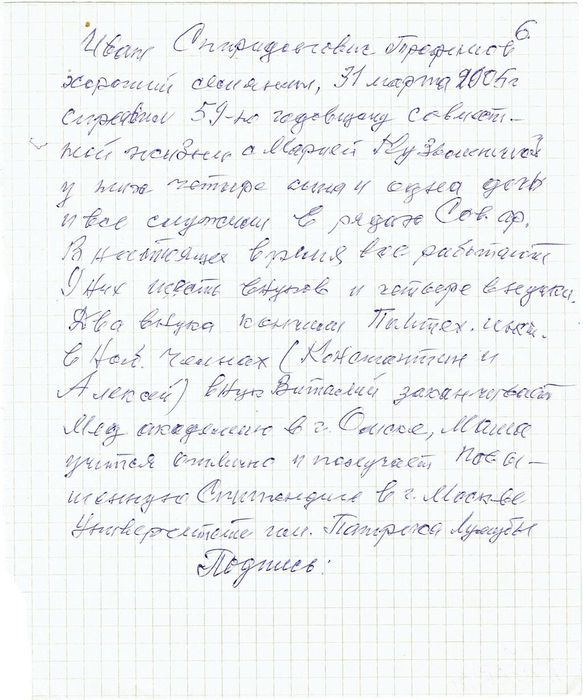 6.
Иван Спиридонович Трофимов
хороший семьянин, 31 марта 2005 г
справили 59-ю годовщину совмест-
ной жизни с Марией Кузьминичной
у них четыре сына и одна дочь
и все служили в рядах Сов. ар.
В настоящее время все работают
У них шесть внуков и четверо внучки.
Два внука кончили Политех. инст.
в Наб. Челнах (Константин и
Алексей) внук Виталий заканчивает
Мед академию в г. Омске, Маша
учится отлично и получает повы-
шенную Стипендию в г. Москве
Университете им. Патриса Лумумбы
Подпись: